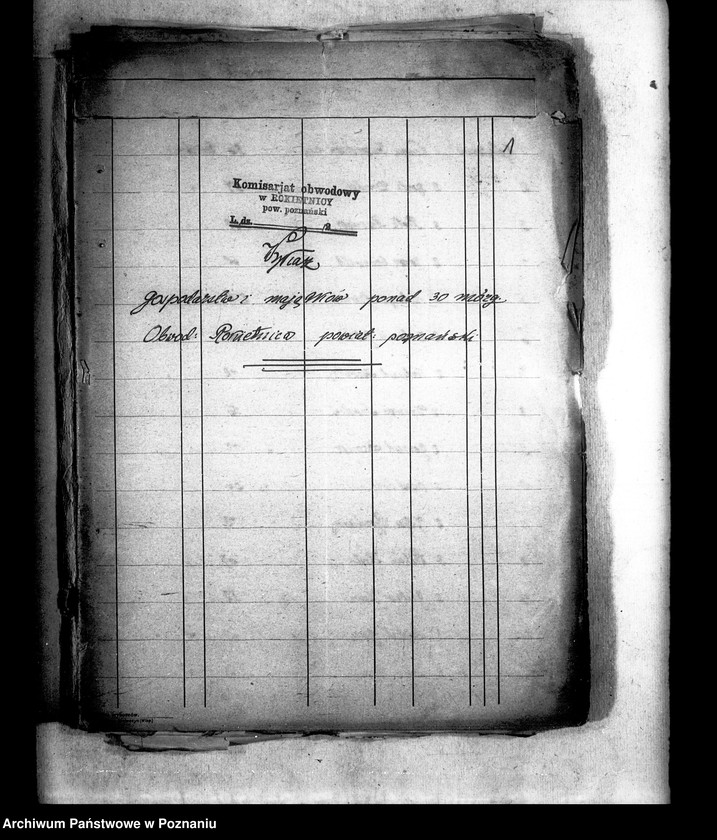 1
Komisarjat obwodowy
w ROKIETNICY
pow. poznański
L. dz.
Wykaz
gospodarstw i majątków ponad 30 mórg.
Obwód: Rokietnica powiat: poznański
Archiwum Państwowe w Poznaniu